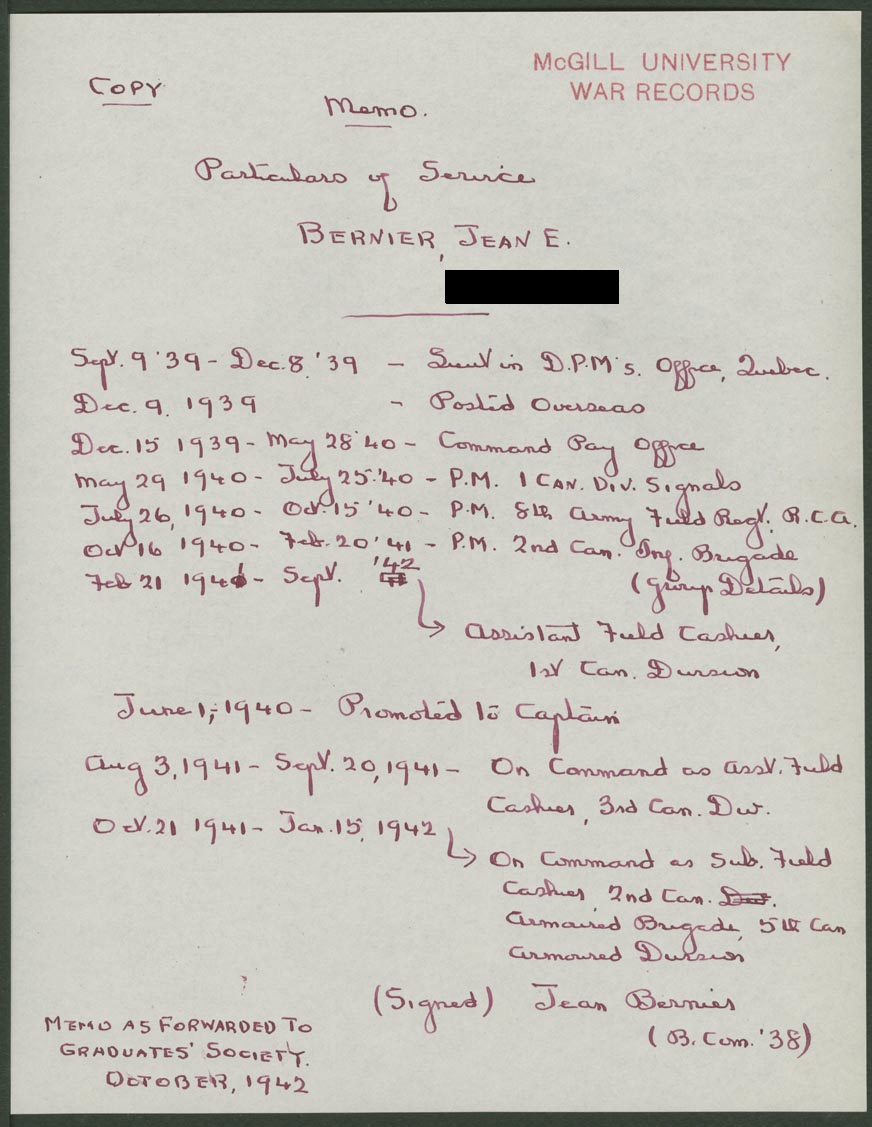 COPY
McGILL UNIVERSITY
WAR RECORDS
Memo.
Particulars of Service
BERNIER, JEAN E.
Sept. 9 '39 - Dec. 8, '39 - in D.P.M's. Office, Quebec.
Dec. 9, 1939 - Posted Overseas
Dec. 15 1939 - May 28 '40 - Command Pay Office
May 29 1940 - July 25 '40 - P.M. 1 CAN. DIV. Signals
July 26, 1940 - Oct. 15 '40 - P.M. 8th Army Field Regt. R.C.A.
Oct 16 1940 - Feb. 20 '41 - P.M. 2nd Can. Inf. Brigade
Feb 21 1941 - Sept. '42 (Group Details)
Assistant Field Cashier,
1st Can. Division
June 1, - 1940 - Promoted to Captain
Aug 3, 1941 - Sept. 20, 1941 - On Command as Asst. Field
Cashier, 3rd Can. Div.
Oct. 21 1941 - Jan. 15, 1942
On Command as Sub. Field
Cashier, 2nd Can. Div.
Armoured Brigade, 5th Can
Armoured Division
(Signed) Jean Bernier
(B. Com. '38)
MEMO AS FORWARDED TO
GRADUATES' SOCIETY.
OCTOBER, 1942